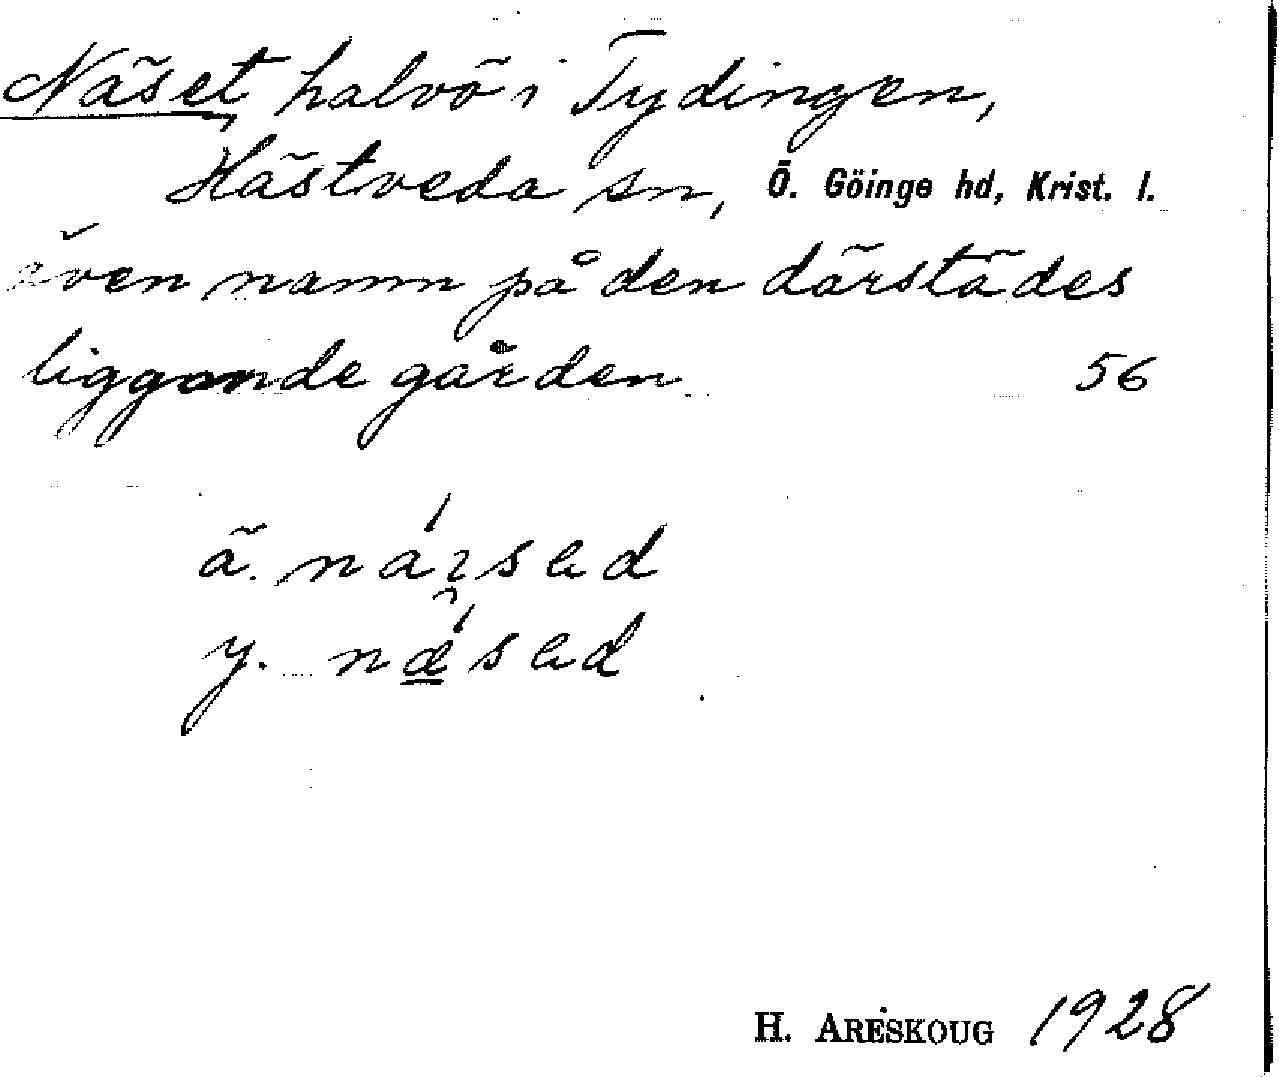 Näset, halvö i Tydingen,
Hästveda sn, Ö. Göinge hd, Krist. l.
även namn på den därstädes
liggande gården 56
ä.
y.
H. ARESKOUG 1928